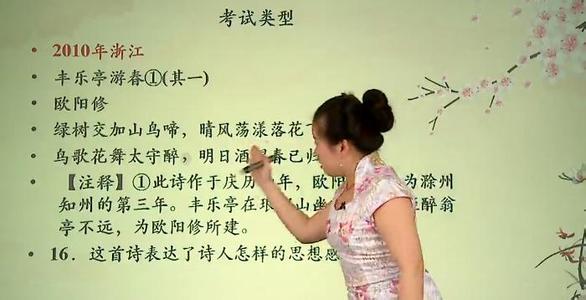 考试类型
2010年浙江
丰乐亭游春①(其一)
欧阳修
绿树交加山鸟啼，晴风荡漾落花
鸟歌花舞太守醉，明日酒 春已归
【注释】①此诗作于庆历 年，欧阳 为滁州
知州的第三年。丰乐亭在琅 山幽 醉翁
亭不远，为欧阳修所建。
16．这首诗表达了诗人怎样的思想感